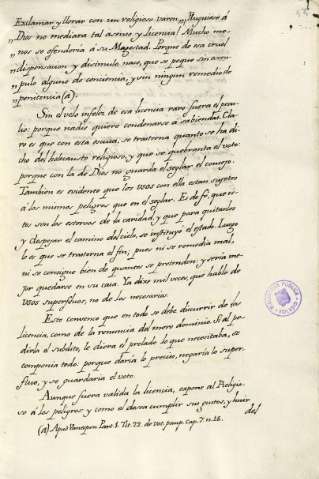 Exclaman y lloran con un religioso varon „¡Pluguiese á
„Dios no mediara tal asenso y licencia! Mucho me-
„nos se ofenderia á su Magestad. Porque de esa cruel
„dispensacion y disimulo nace, que se peque sin escrú-
„pulo alguno de conciencia, y sin ningun remedio de
„penitencia (a).
Sin el velo infeliz de esa licencia raro fuera el pecu-
lio; porque nadie quiere condenarse á sabiendas. Cla-
ro es que con esta escusa, se trastorna quanto se ha di-
cho del habimiento religioso, y que se quebranta el voto:
porque con la de Dios no concuerda el seglar el consejo.
Tambien es evidente que los usos con ella estan sugetos
á los mismos peligros que en el seglar. Es de fe, que es-
tos son los estorvos de la caridad, y que para quitarlos
y despejar el camino del cielo, se instituyo el estado. Luego
lo es que se trastorna el fin, pues ni se remedia mal,
ni se consigue bien de quantos se pretenden; y seria me-
jor quedarse en su casa. Ya dixe mil veces, que hablo de
usos superfluos, no de los necesarios.
Esto convence que en todo se debe discurrir de la
licencia, como de la renuncia del mero dominio. Si al pe-
dirla el subdito, le diera el prelado lo que necesitaba, se
componia todo: porque daria lo preciso, negaria lo super-
fluo, y se guardaria el voto.
Aunque fuera valida la licencia, expone al Religio-
so á los peligros y como el desea cumplir sus gustos, y huir
del
(a) Apud